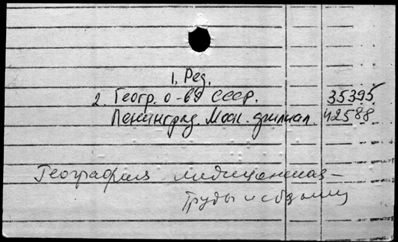 1. Ред.
2. Геогр. о-во СССР. 35395
Ленинград. Моск. филиал. 42588
География медицинская -
Труды и сб.